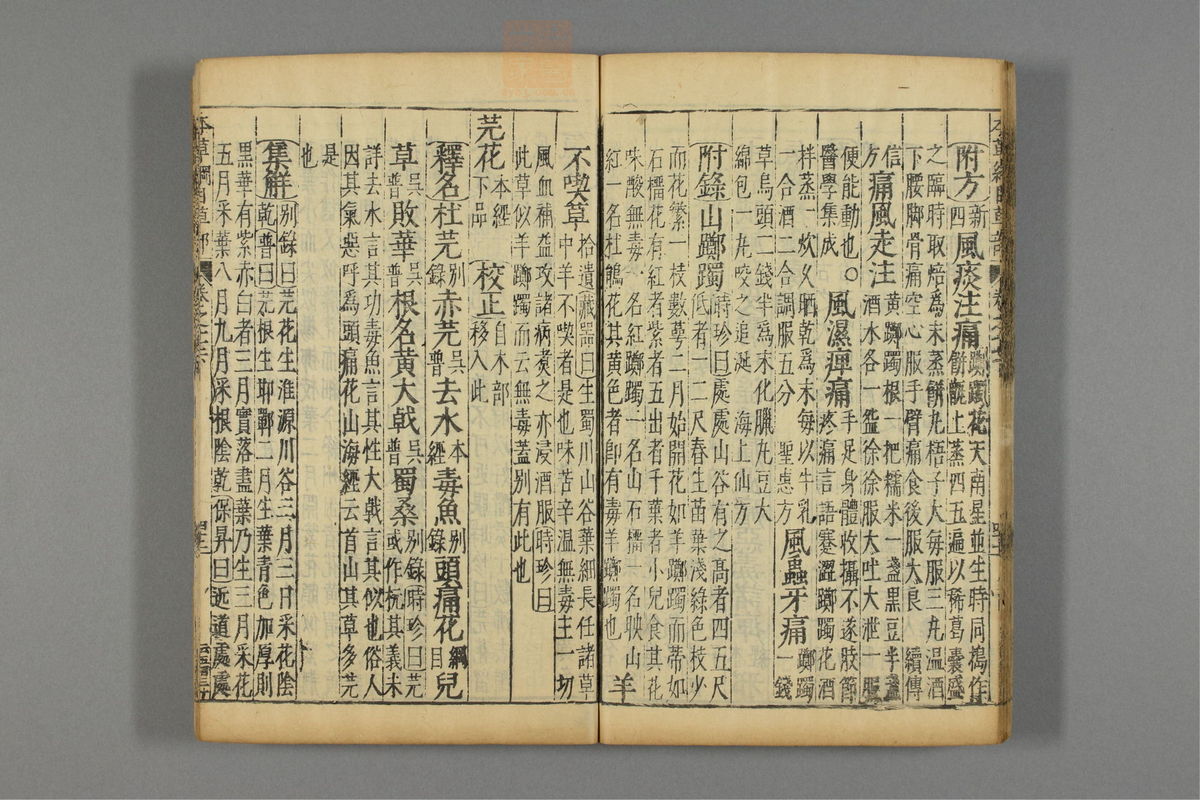 附方新四 風痰注痛 躑躅花天南星並生時同搗作
餅甑上蒸四五遍以稀葛囊盛
之臨時取焙爲末蒸餅丸梧子大每服三丸溫酒
下腰脚骨痛空心服手臂痛食後服大良 續傳
信方 痛風走注 黃躑躅根一把糯米一盞黑豆半盞
酒水各一盌徐徐服大吐大泄一服
便能動也。醫學集成 風濕痹痛 手足身體收攝不遂肢節
疼痛言語蹇澀躑躅花酒
拌蒸一炊久晒乾爲末每以牛乳
一合酒二合調服五分 聖惠方 風蟲牙痛 躑躅一錢
草烏頭二錢半爲末化臘丸豆大
綿包一丸咬之追涎 海上仙方
附錄 山躑躅 時珍曰處處山谷有之高者四五尺
低者一二尺春生苗葉淺綠色枝少
而花繁一枝數萼二月始開花如羊躑躅而蒂如
石榴花有紅者紫者五出者千葉者小兒食其花
味酸無毒一名紅躑躅一名山石榴一名映山
紅一名杜鵑花其黃色者即有毒羊躑躅也 羊
不喫草 拾遺 藏器曰生蜀川山谷葉細長任諸草
中羊不喫者是也味苦辛溫無毒主一切
風血補益攻諸病煑之亦浸酒服時珍曰
此草似羊躑躅而云無毒蓋別有此也
芫花 本經下品 校正 自木部移入此
釋名 杜芫 別錄 赤芫 吳普 去水 本經 毒魚 別錄 頭痛花 綱目 兒
草 吳普 敗華 吳普 根名黃大戟 吳普 蜀桑 別錄時珍曰芫
或作杬其義未
詳去水言其功毒魚言其性大戟言其似也俗人
因其氣惡呼爲頭痛花山海經云首山其草多芫
是也
集解 別錄曰芫花生淮源川谷三月三日采花陰
乾普曰芫根生邯鄲二月生葉青色加厚則
黑華有紫赤白者三月實落盡葉乃生三月采花
五月采葉八月九月采根陰乾保昇曰近道處處
本草綱目草部